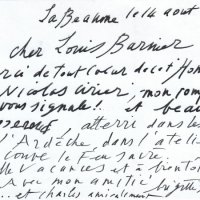 La Beaume le 14 août
cher Louis Barnier
rci de tout coeur de cet Hom
Nicolas Cirier, mon rom
vous signale! et beau
atterri dans les
l'Ardèche, dans l'ateli
ouve le Feu sacré.
Vacances et à bientô
Avec mon amitié brigitte
et charles amicalement